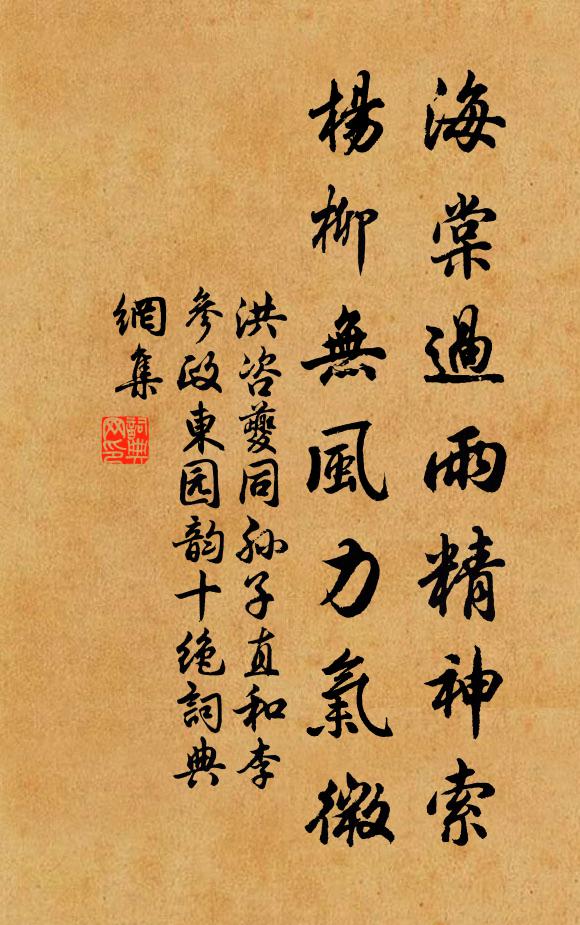 海棠過雨精神索
楊柳無風力氣微
洪咨夔同孙子直和李
參政東园韵十绝詞典
網集
詞典
网印